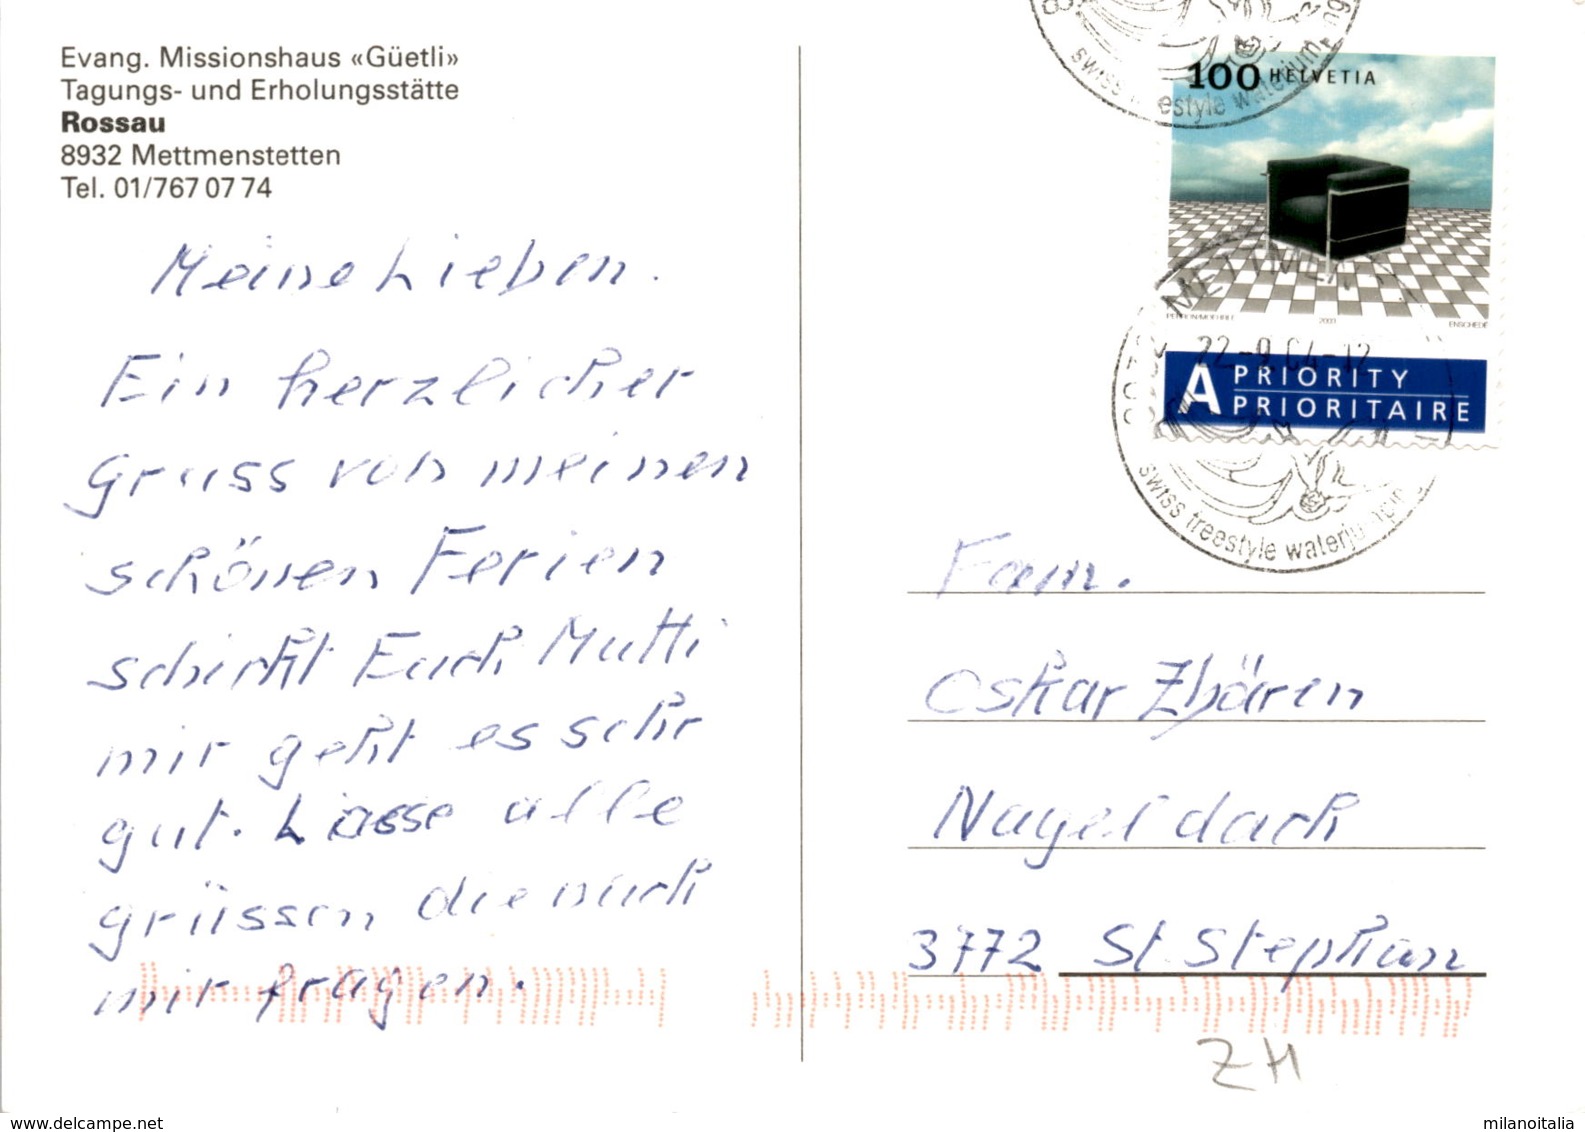 Evang. Missionshaus «Güetli»
Tagungs- und Erholungsstätte
Rossau
8932 Mettmenstetten
Tel. 01/767 07 74
Meine Lieben.
Ein herzlicher
Gruss von meinen
schönen Ferien
schickt Euch Mutti
mir geht es sehr
gut. Lasse alle
grüssen, die nach
mir fragen.
swiss freestyle waterjumping
100 HELVETIA
2003
ENSCHEDÉ
A PRIORITY
PRIORITAIRE
swiss freestyle waterjumping
Fam.
Oskar Zbären
Nageldach
3772 St. Stephan
ZH
www.delcampe.net
milanoitalia